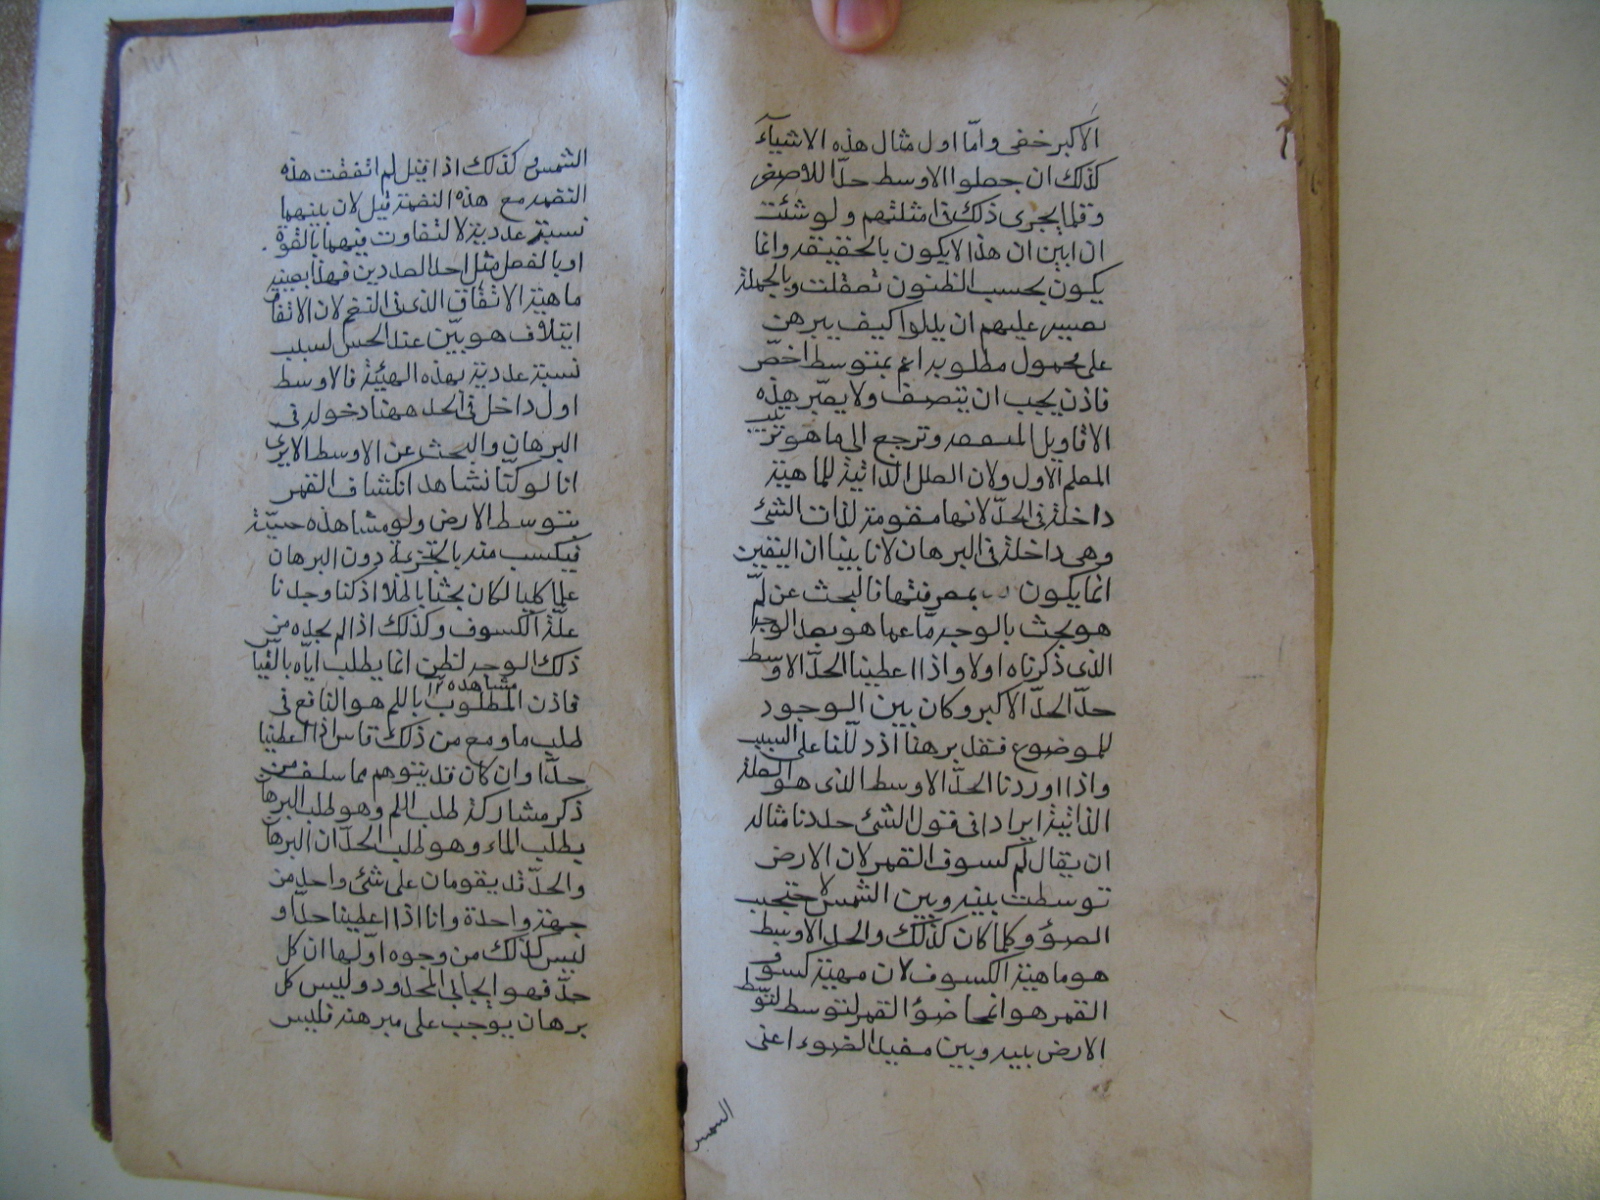 الاكبر خفى وامّا اول مثال هذه الاشيآء
كذلك ان جعلوا الاوسط حدّا للاصغر
وقلما يجرى ذلك فى امثلتهم ولو شئت
ان ابين ان هذا لا يكون بالحقيقه وانما
يكون بحسب الظنون تعقلت وبالجملة
عليهم ان يدلوا كيف يبرهن
على محمول مطلوبه اعم بمتوسط اخصّ
فاذن يجب ان ينتصف ولا يعبّر هذه
الاقاويل وترجع الى ما هو ترتيب
المعلم الاول ولان العلل الذاتية للماهية
داخلة فى الحدّ لانها مقومة لذات الشئ
وهى داخلة فى البرهان لانا بينا ان اليقين
انما يكون بمعرفتها فالبحث عن لم
هو بحث بالوجه ما عما هو بعد الوجه
الذى ذكرناه اولا واذا اعطينا الحدّ الاوسط
حدّ الحدّ الاكبر وكان بين الوجود
للموضوع فقد برهنا اذ دللنا على السبب
واذا اوردنا الحدّ الاوسط الذى هو العلة
الذاتية ايرادا فى قول الشئ حددنا مثاله
ان يقال لم كسوف القمر لان الارض
توسطت بينه وبين الشمس لا حتجب
الضوء وكلما كان كذلك والحد الاوسط
هو ماهية الكسوف لان مهية كسوف
القمر هو انمحا ضوؤ القمر لتوسط
الارض بينه وبين مفيد الضوء اعنى
الشمس
الشمس وكذلك اذا قيل لم اتفقت هذه
النغمه مع هذه النغمة قيل لان بينهما
نسبة عددية لا لتفاوت فيهما بالقوة
او بالفعل مثل احد العددين فهذا بعينه
ماهية الاتفاق الذى فى النغم لان الاتفاق
ايتلاف هو بيّن عند الحس لسبب
نسبة عددية بهذه الهيئة فالاوسط
اول داخل فى الحد ههنا دخوله فى
البرهان والبحث عن الاوسط الا يرى
انا لو كنّا نشاهد انكشاف القمر
بتوسط الارض ولو مشاهده حسّية
فيكسب منه بالتجربة دون البرهان
علما كليا لكان بحثنا باطلا اذ كنا وجدنا
علّة الكسوف وكذلك اذا لم نجده من
ذلك الوجه لنظن انما يطلب ايّاه بالقياس
مشاهده
فاذن المطلوب باللم هو النافع فى
طلب ما ومع من ذلك فاذا اعطينا
حدّا وان كان قد يتوهم مما سلف من
ذكر مشاركة طلب اللم وهو طلب البرهان
يطلب الماء وهو طلب الحدّ ان البرهان
والحدّ قد يقومان على شئ واحد من
جهة واحدة وانا اذا اعطينا حدّا و
ليس كذلك من وجوه اوّلها ان كل
حدّ فهو ايجابى المحدود وليس كل
برهان يوجب على مبرهنه فليس